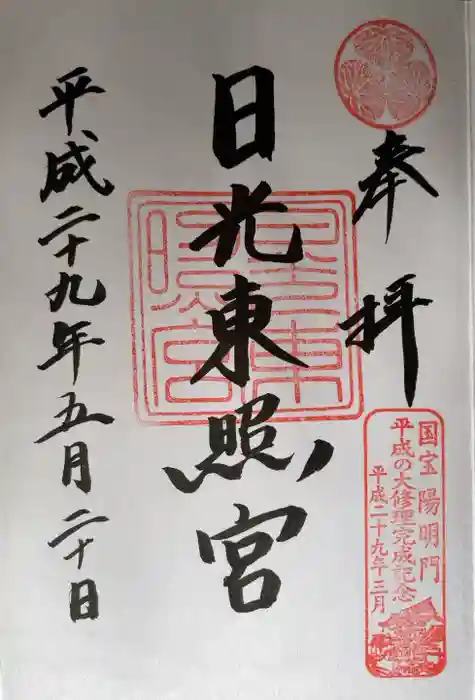 奉拝
国宝 陽明門
平成の大修理完成記念
平成二十九年三月
日光東照宮
平成二十九年五月二十日